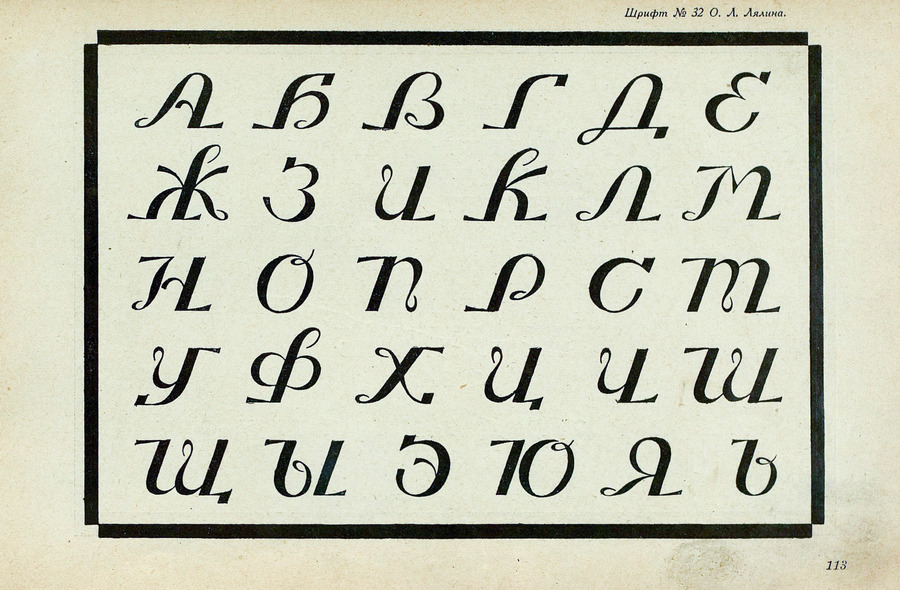 Шрифт № 32 О. Л. Лялина.
А Б В Г Д Е
Ж З И К Л М
Н О П Р С Т
У Ф Х Ц Ч Ш
Щ Ы Э Ю Я Ь
113